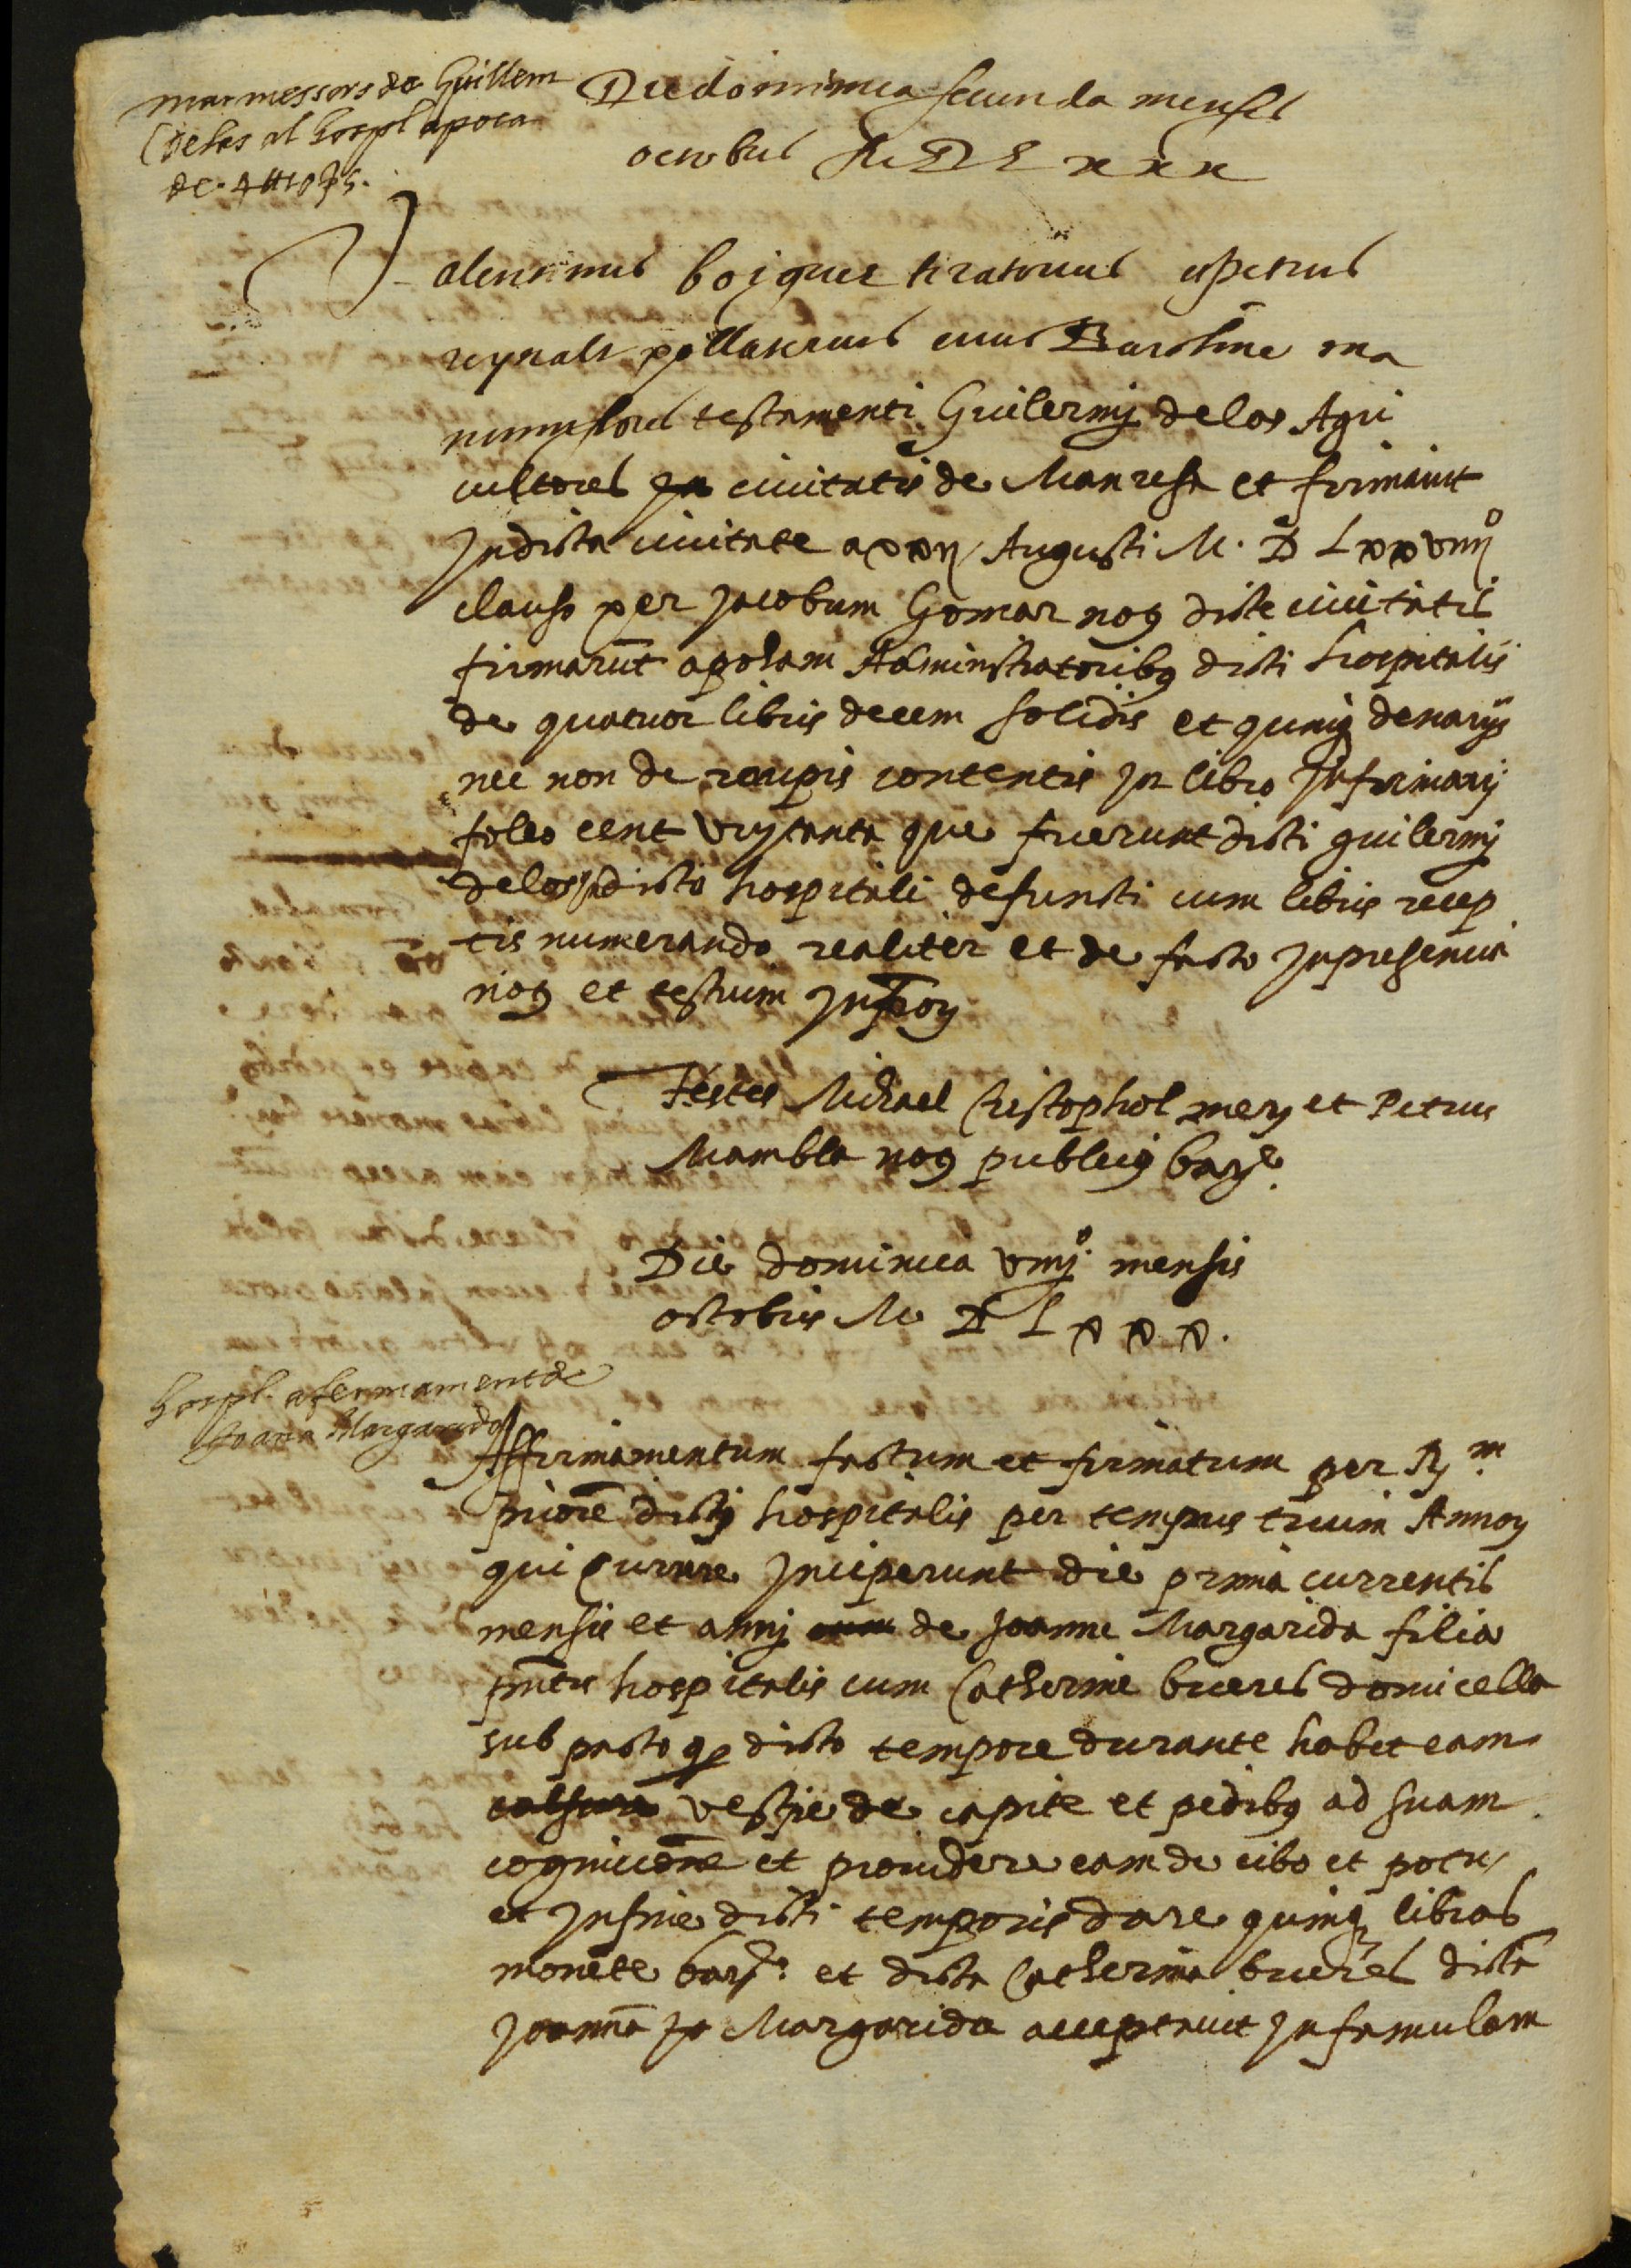 marmessors de Guillem
Delos al hospl apoca
de 4 ₶ 10 ẜ 5.
Die dominica secunda mensis
octobris M D L x x x
Valentinus boiguer tiratorius et Petrus
reynalt passaterius cives Barchine ma
numissores testamenti Guilermj delos Agri
cultores civitatis de Manresa et firmavit
Jn dicta civitate a xxij Augusti M. D Lxxviiijº
clauso per Jacobum Gomar noꝰ dicte civitatis
firmarūt apocham Administratoribꝰ dicti hospitalis
de quatuor libris decem solidis et quinqꝫ denarijs
nec non de raupis contentis Jn libro Jnfirmarij
foleo cent vuytanta que fuerunt dicti guilermj
delos Jn dicto hospitali defuncti cum libris recep
tis numerando realiter et de facto Jn presencia
noꝰ et testium Jnfroꝝ
Testes Michael Cristophol merꝝ et Petrus
Mambla noꝰ publicꝰ barᵉ.
Die dominica viiijº mensis
octobris M D L x x x.
hospl. afermament de
Joana Margarida
Affirmamentum factum et firmatum per Rᵐ
priorē dictj hospitalis per tempus trium Annoꝝ
qui currere Jnceperunt die prima currentis
mensis et annj de Joanne Margarida filia
pntis hospitalis cum Catherine bueres domicella
sub pacto ꝙ dicto tempore durante habet eam
vestire de capite et pedibꝰ ad suam
cognicionē et providere eam de cibo et potu
et Jn fine dicti temporis dare quinqꝫ libras
monete barᵉ. et dicta Catherina bueres dictā
Joannā Margarida acceptavit Jn famulam